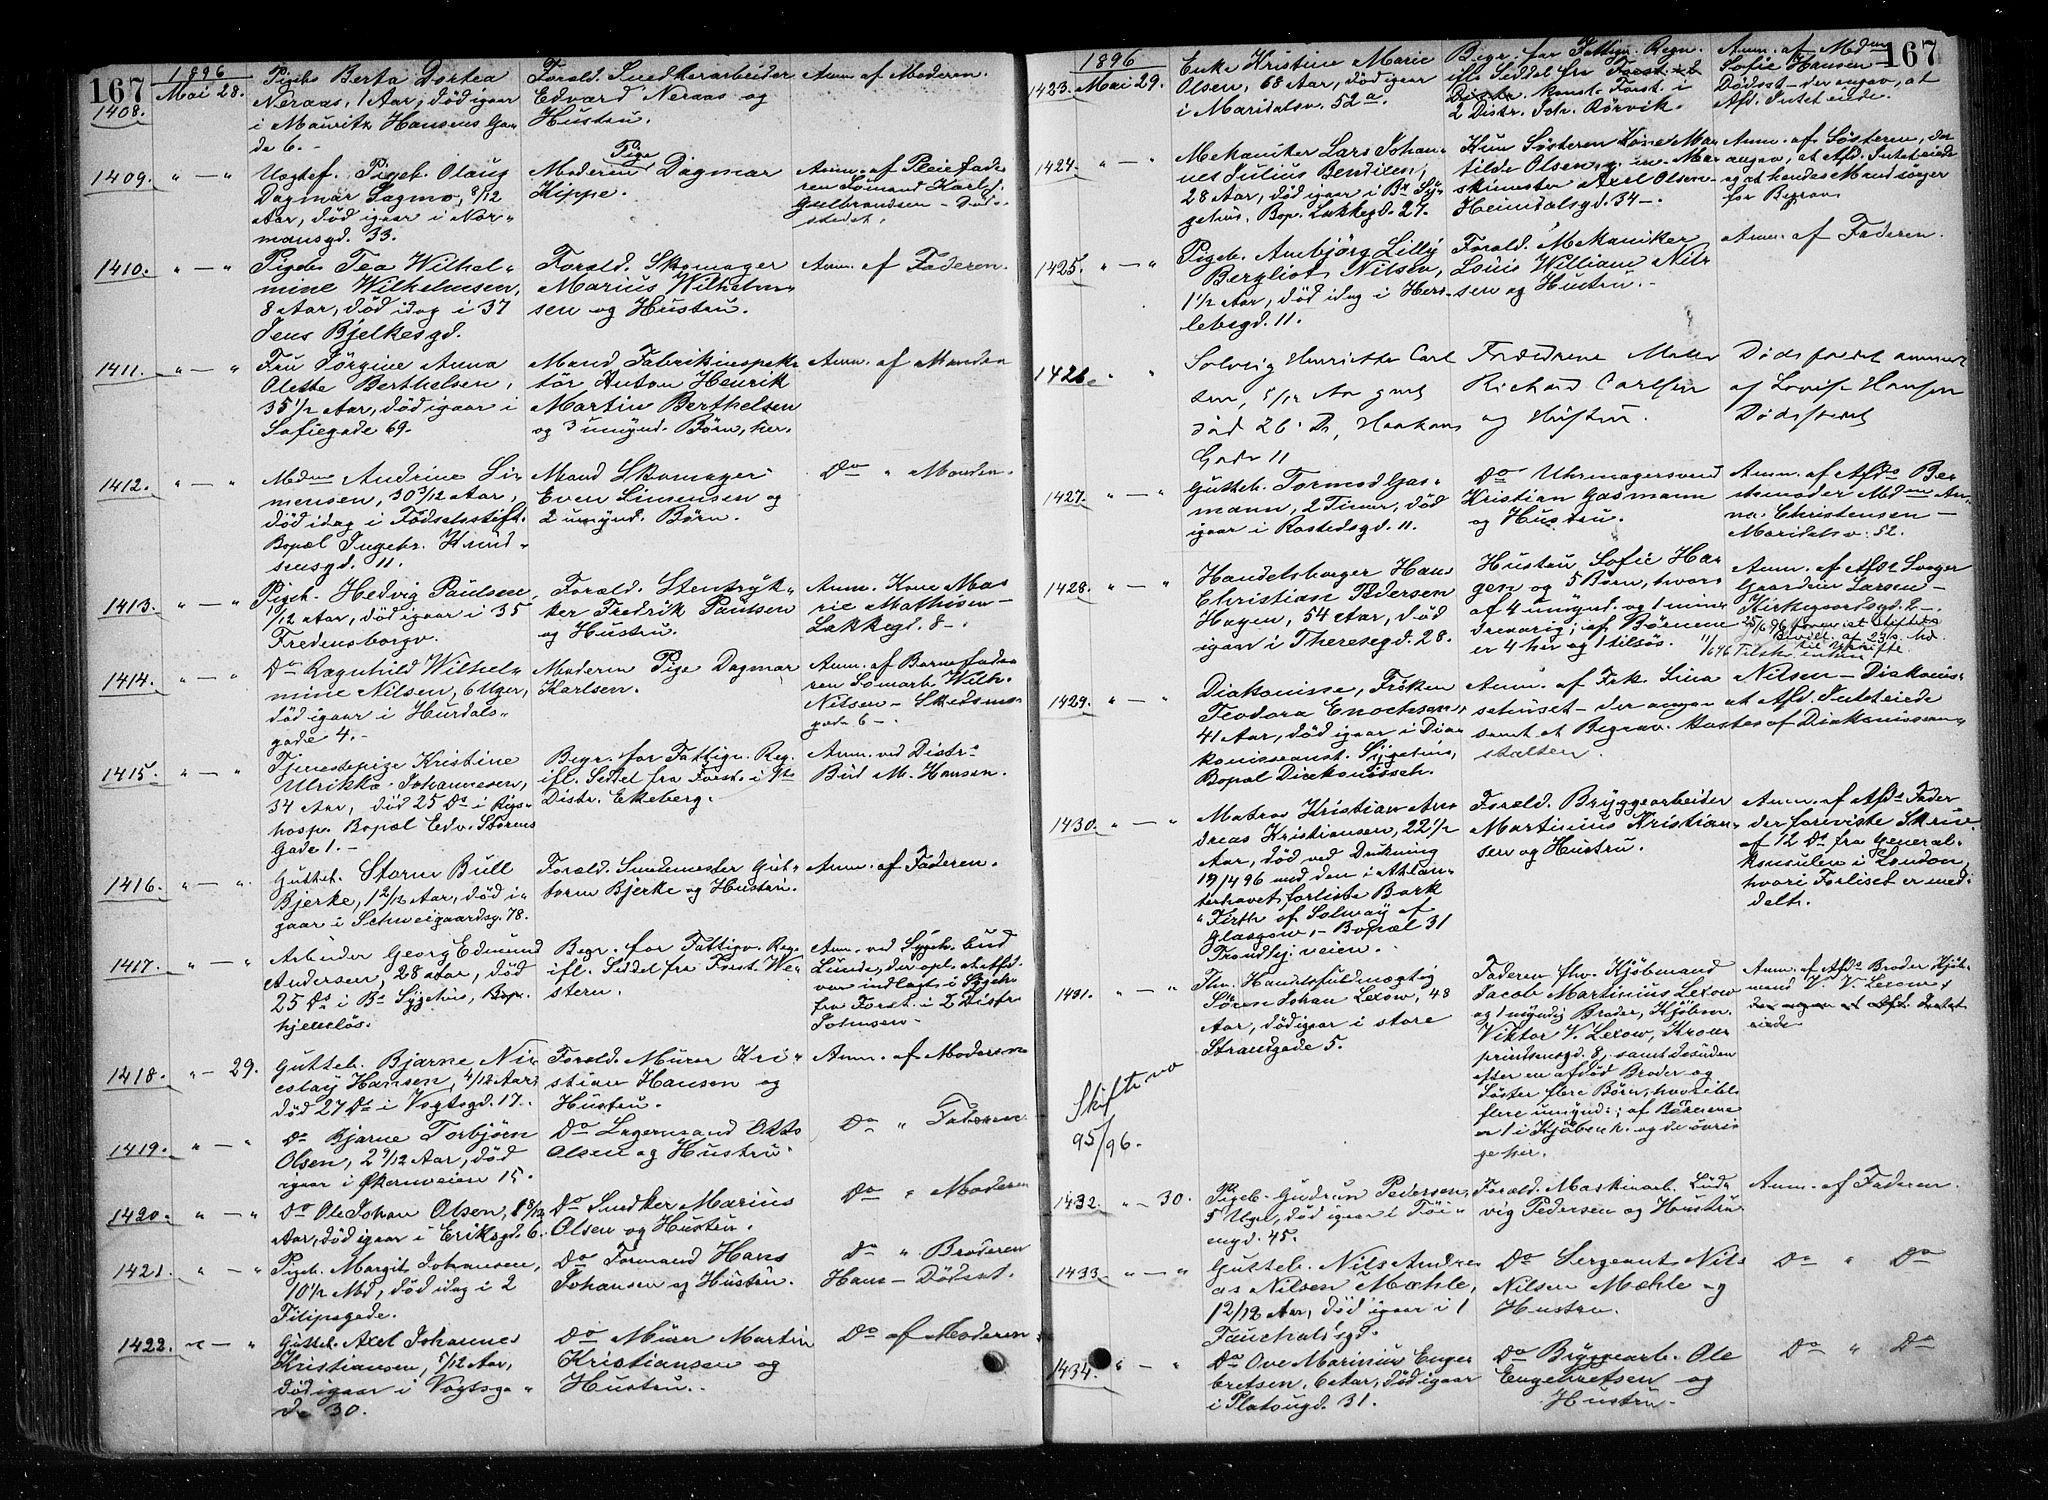 167
1896
1408. Mai 28. Pigeb. Berta Dortea
Neraas, 1 Aar, død igaar
i Mauritz Hansens Ga-
de 6.
Foræld. Snedkerarbeider
Edvard Neraas og
Hustru.
Anm. af Moderen.
1409. " — " Uægtef. Pigeb. Olaug
Dagmar Sagmo, 8/12
Aar, død igaar i Nor-
mansgd. 33.
Moderen Pige Dagmar
Hippe.
Anm. af Pleiefade-
ren Sømand Karl J.
Gulbrandsen – Død-
stedet.
1410. " — " Pigeb. Tea Wilhel-
mine Wilhelmsen,
8 Aar, død idag i 37
Jens Bjelkesgd.
Foræld. Skomager
Marius Wilhelm-
sen og Hustru.
Anm. af Faderen.
1411. " — " Fru Jørgine Anna
Olette Berthelsen,
35 1/2 Aar, død igaar i
Sofiegade 69.
Mand Fabrikinspek-
tør Anton Henrik
Martin Berthelsen
og 3 umynd. Børn, her.
Anm. af Manden
1412. " — " Mdm Andrine Si-
mensen, 30 3/12 Aar,
død idag i Fødselsstift.
Bopæl Ingebr. Knud-
sensgd. 11.
Mand Skomager
Even Simensen og
2 umynd. Børn.
Do " Manden.
1413. " — " Pigeb. Hedvig Paulsen
1/12 Aar, død igaar i 35
Fredensborgv.
Foræld. Stentryk-
ker Fredrik Paulsen
og Hustru.
Anm. Kone Ma-
rie Mathisen –
Lakkegd. 8 –.
1414. " — " Do Ragnhild Wilhel-
mine Nilsen, 6 Uger,
død igaar i Hurdals-
gade 4. –
Moderen Pige Dagmar
Karlsen.
Anm. af Barnefade-
ren Sømand Wilh.
Nilsen – Skedsmo-
gade 6 –.
1415. " — " Tjenestepige Kristine
Ulrikka Johannesen,
34 Aar, død 25 Ds i Rigs-
hosp. Bopæl Edv. Storms
Gade 1. –
Begr. for Fattigv. Reg.
ifl. Seddel fra Forst. i 9de
Distr. Ekeberg.
Anm. ved Distr.
Bud M. Hansen.
1416. " — " Gutteb. Storm Bull
Bjerke, 1 2/12 Aar, død i-
gaar i Schweigaardsg. 78.
Foræld. Smedmester Gut-
torm Bjerke og Hustru.
Anm. af Faderen.
1417. " — " Arbeider Georg Edmund
Andersen, 28 Aar, død
25 Ds i By Sygehus, Bop.
hjemløs.
Begr. for Fattigv. Reg.
ifl. Seddel fra Forst. We-
stern.
Anm. ved Sygeh. bud
Lunde, der opl. at Afd.
var indlagt i Sygeh.
fra Forst. i 2 Distr.
Johnsen.
1418. " — 29. Gutteb. Bjarne Ni-
colay Hansen, 4/12 Aar,
død 27 Ds i Vogtsgd. 17.
Foræld. Murer Kri-
stian Hansen og
Hustru.
Anm. af Moderen
1419. " — " Do Bjarne Torbjørn
Olsen, 2 9/12 Aar, død
igaar i Økernveien 15.
Do Lagermand Otto
Olsen og Hustru.
Do " Faderen
1420. " — " Do Ole Johan Olsen, 1 8/12
Aar, død igaar i Eriksgd. 6.
Do Snedker Marius
Olsen og Hustru.
Do " Moderen
1421. " — " Pigeb. Margit Johansen,
10 1/2 Md, død idag i 2
Filipsgade.
Do Formand Hans
Johansen og Hustru.
Do " Broderen
Hans – Dødsst.
1422. " — " Gutteb. Axel Johannes
Kristiansen, 7/12 Aar,
død igaar i Vogtsga-
de 30.
Do Murer Martin
Kristiansen og
Hustru.
Do af Moderen
167
1896
1423. Mai 29. Enke Kristine Marie
Olsen, 68 Aar, død igaar
i Maridalsv. 52 a.
Begr. for Fattigv. Regn.
ifl. Seddel fra Forst. i 2
Distr. konst. Forst. i
2 Distr. Joh. Rörvik.
Anm. af Mdm
Sofie Hansen –
Dødsst – der angav, at
Afd. Intet eiede.
1424. " — " Mekaniker Lars Johan-
nes Julius Bendixen,
28 Aar, død igaar i By Sy-
gehus. Bop. Lakkegd. 27.
Kun Søsteren Kone Ma-
tilde Olsen, g. m. Ma-
skinmester Axel Olsen –
Heimdalsgd. 34 –.
Anm. af Søsteren, der
angav, at Afd. Intet eiede
og at hendes Mand sørger
for Begrav.
1425. " — " Pigeb. Anbjörg Lilly
Bergliot Nilsen,
1 1/2 Aar, død idag i Hers-
lebsgd. 11.
Foræld. Mekaniker
Louis William Nil-
sen og Hustru.
Anm. af Faderen.
1426. " " Solveig Henriette Carl
sen, 5/12 Aar gml
død 26 Ds, Haakons
Gade 11
Forældrene Maler
Richard Carlsen
og Hustru.
Dødsfaldet anmeldt
af Lovise Hansen
Dødsstedet
1427. " — " Gutteb. Tormod Gas-
mann, 2 Timer, død
igaar i Rostedsgd. 11.
Do Uhrmagersvend
Kristian Gasmann
og Hustru.
Anm. af Afds Be-
stemoder Mdm An-
na Christensen –
Maridalsv. 52.
1428. " — " Handelsborger Hans
Christian Pedersen
Hagen, 54 Aar, død
igaar i Theresegd. 28.
Hustru Sofie Ha-
gen og 5 Børn, hvor-
af 4 umynd. og 1 min-
dreaarig; af Børnene
er 4 her og 1 tilsøs.
Anm. af Afds Svoger
Gaardeier Larsen –
Kirkegaardsgd. 2 –.
1429. " — " Diakonisse, Frøken
Teodora Enochsen,
41 Aar, død igaar i Dia-
konisseanst. Sygehus,
Bopæl Diakonisseh.
Anm. af Frk. Lina Nilsen – Diakonis-
sehuset – der angav at Afd. Intet eiede
samt at Begrav. kostes af Diakonissean-
stalten.
1430. " — " Matros Kristian An-
dreas Kristiansen, 22 1/2
Aar, død ved Drukning
19/4 96 med den i Atlan-
terhavet forliste Bark
"Firth of Solway af
Glasgow, – Bopæl 31
Trondhj. veien.
Foræld. Bryggearbeider
Martinius Kristian-
sen og Hustru.
Anm. af Afds Fader
der foreviste Skriv.
af 12 Ds fra General-
konsulen i London,
hvori Forliset er med-
delt.
1431. " — " Fhv. Handelsfuldmægtig
Sören Johan Lexow, 48
Aar, død igaar i store
Strandgade 5.
Skifte no
95/96.
Faderen fhv. Kjøbmand
Jacob Martinius Lexow
og 1 myndig Broder, Kjøbm.
Viktor V. Lexow, Kron-
prinsensgd. 8, samt desuden
efter en afdød Broder og
Søster flere Børn, hvoriblt
flere umynd.; af Børnene
er 1 i Kjøbenh. og de øvri-
ge her.
Anm. af Afds Broder Kjøb-
mand V. V. Lexow,
der angav at Afd. Intet
eiede.
1432. " — 30. Pigeb. Gudrun Pedersen,
5 Uger, død igaar i Töi-
engd. 45.
Foræld. Maskinarb. Lud-
vig Pedersen og Hustru
Anm. af Faderen.
1433. " — " Gutteb. Nils Andre-
as Nilsen Mæhle,
12/12 Aar, død igaar i 1
Fauchaldsgd.
Do Sergeant Nils
Nilsen Mæhle og
Hustru.
Do " Do
1434. " — " Do Ove Marinius Enge-
bretsen, 6 Aar, død igaar
i Platougd. 31.
Do Bryggearb. Ole
Engebretsen og
Hustru.
Do " Do